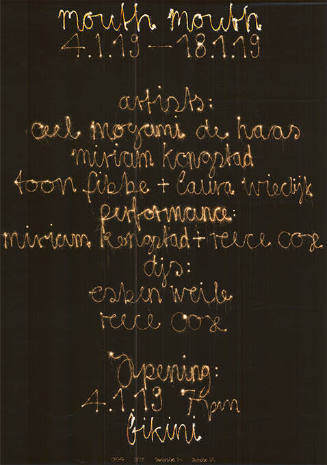 mouth mouth
4.1.19 — 18.1.19
artists:
ceel mogami de haas
miriam kongstad
toon fibbe + laura wiedijk
performance:
miriam kongstad + reece cox
djs:
esben weile
reece cox
Opening:
4.1.19 7pm
bikini